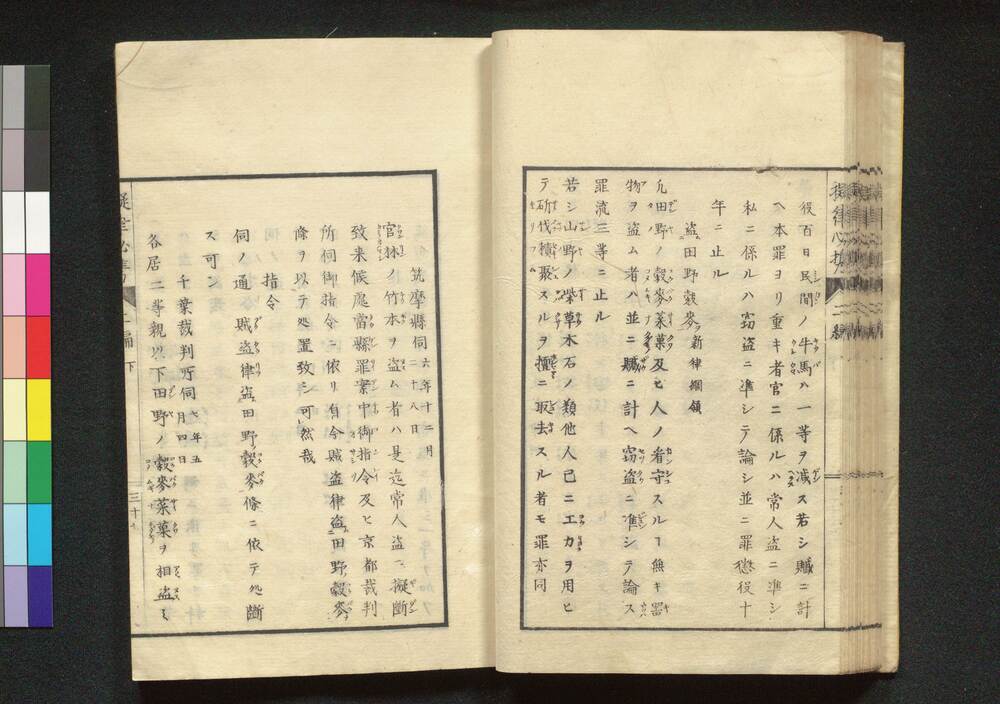 役百日民間ノ牛馬ハ一等ヲ減ス若シ贓ニ計
ヘ本罪ヨリ重キ者官ニ係ルハ常人盗ニ準シ
私ニ係ルハ窃盗ニ準シテ論シ並ニ罪懲役十
年ニ止ル
盗田野穀麥 新律綱領
凡田野ノ穀麥菜菓及ヒ人ノ看守スルヿ無キ器
物ヲ盗ム者ハ並ニ贓ニ計ヘ窃盗ニ準シテ論ス
罪流三等ニ止ル
若シ山野ノ柴草木石ノ類他人已ニ工力ヲ用ヒ
テ斫伐積聚スルヲ擅ニ取去スル者モ罪亦同
筑摩縣伺 六年十二月二十八日
官林ノ竹木ヲ盗ム者ハ是迄常人盗ニ擬斷
致来候處當縣罪案中御指令及ヒ京都裁判
所伺御指令ニ依リ自今賊盗律盗田野穀麥
條ヲ以テ処置致シ可然哉
指令
伺ノ通賊盗律盗田野穀麥條ニ依テ処斷
ス可シ
千葉裁判所伺 七年五月四日
各居二等親以下田野ノ穀麥菜菓ヲ相盗ミ
二編 下